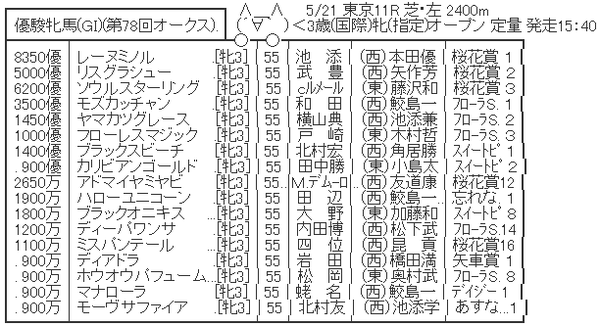 優駿牝馬(GI)(第78回オークス). 5/21 東京11R 芝・左 2400m
(´▽`) <3歳(国際)牝(指定)オープン 定量 発走15:40
8350優 レーヌミノル [牝3] 55 池 添 (西)本田優 桜花賞 1
5000優 リスグラシュー [牝3] 55 武 豊 (西)矢作芳 桜花賞 2
6200優 ソウルスターリング [牝3] 55 c.ルメール (東)藤沢和 桜花賞 3
3500優 モズカッチャン [牝3] 55 和 田 (西)鮫島一 フローラS. 1
1450優 ヤマカツグレース [牝3] 55 横山典 (西)池添兼 フローラS. 2
1000優 フローレスマジック [牝3] 55 戸 崎 (東)木村哲 フローラS. 3
1400優 ブラックスビーチ [牝3] 55 北村宏 (西)角居勝 スイートピ 1
. 900優 カリビアンゴールド [牝3] 55 田中勝 (東)小島太 スイートピ 2
2650万 アドマイヤミヤビ [牝3] 55 M.デムーロ (西)友道康 桜花賞12
1900万 ハローユニコーン ...[牝3] 55 田 辺 (西)鮫島一... 忘れな. 1
1800万 ブラックオニキス ...[牝3] 55 大 野 (東)加藤和 スイートピ 8
1200万 ディーパワンサ [牝3] 55 内田博 (西)松下武 フローラS.14
1100万 ミスパンテール [牝3] 55 四 位 (西)昆 貢 桜花賞16
. 900万 ディアドラ [牝3] 55 岩 田 (西)橋田満 矢車賞 1
. 900万 ホウオウパフューム...[牝3] 55 松 岡 (東)奥村武 フローラS. 8
. 900万 マナローラ [牝3] 55 蛯 名 (西)鮫島一 デイジー 1
. 900万 モーヴサファイア [牝3] 55 北村友 (西)池添学 あすな...1